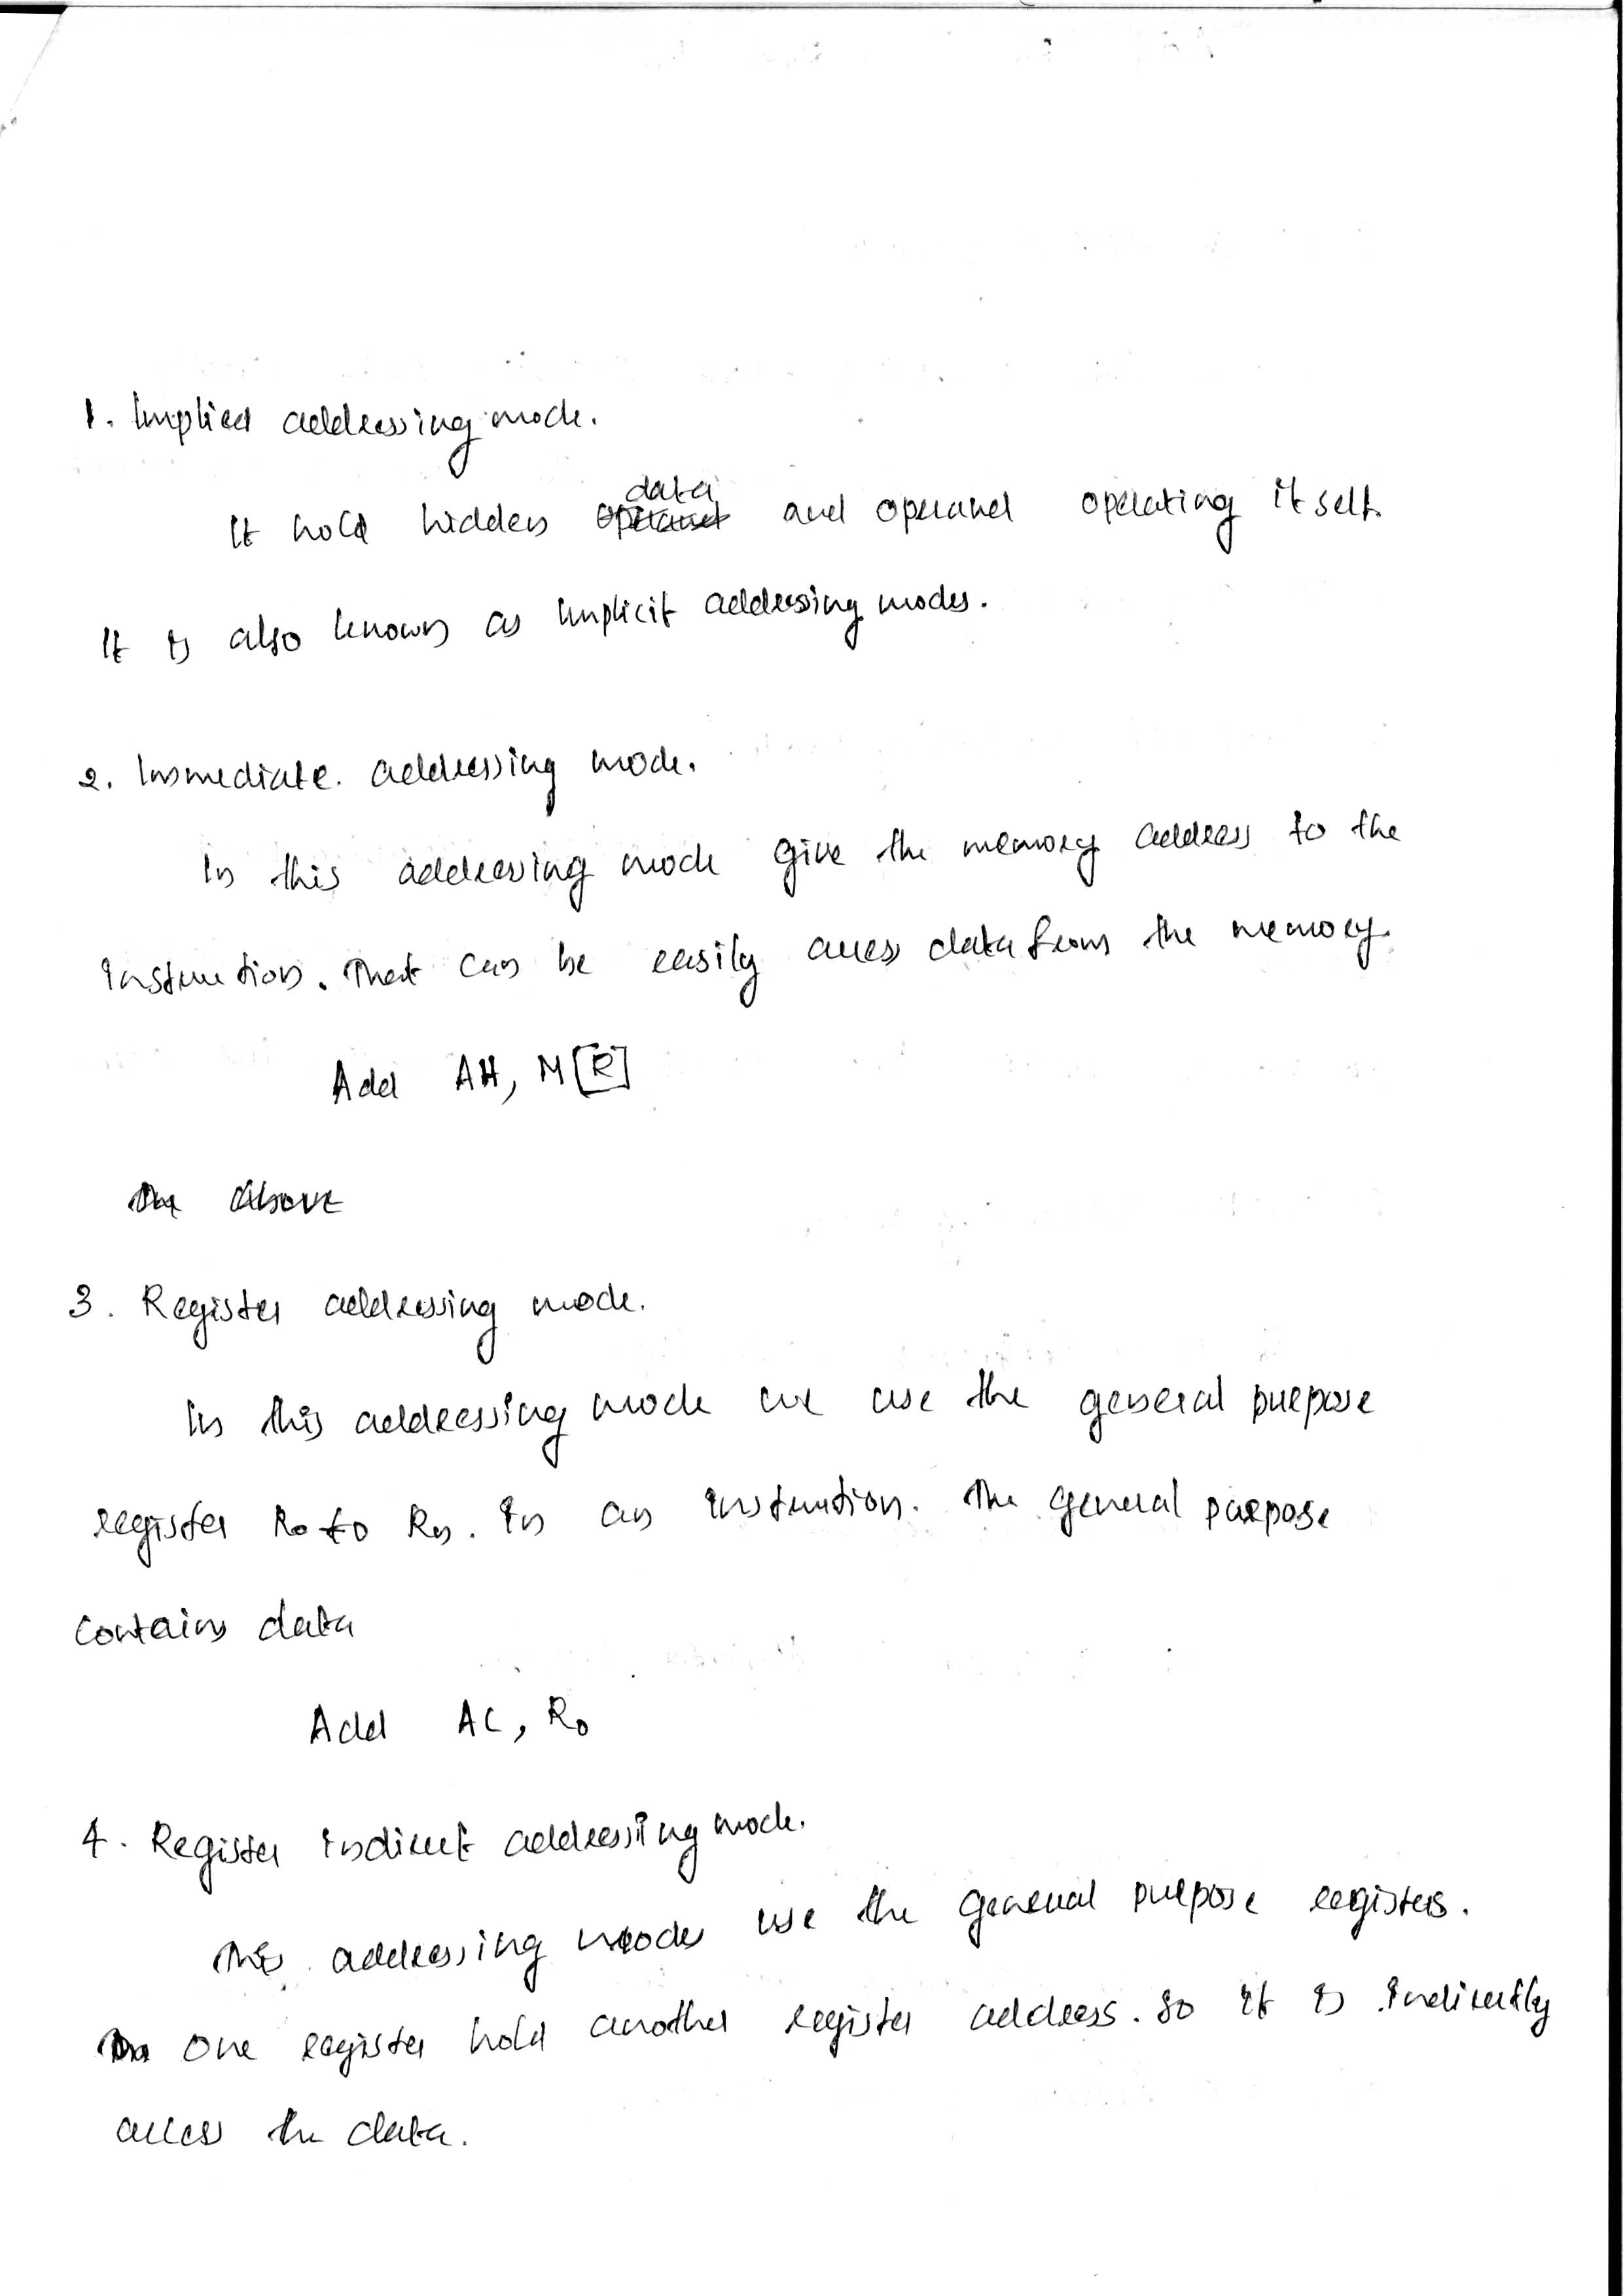 1. Implied addressing mode.
It hold hidden data and operand operating itself.
It is also known as implicit addressing modes.
2. Immediate. addressing mode.
In this addressing mode give the memory address to the
instruction. That can be easily acces data from the memory.
Add AH, M[R]
The above
3. Register addressing mode.
In this addressing mode we use the general purpose
register R0 to Rn. in an instruction. The general purpose
contains data
Add AC, R0
4. Register indirect addressing mode.
This addressing modes use the general purpose registers.
One register hold another register address. So it is indirectly
acces the data.